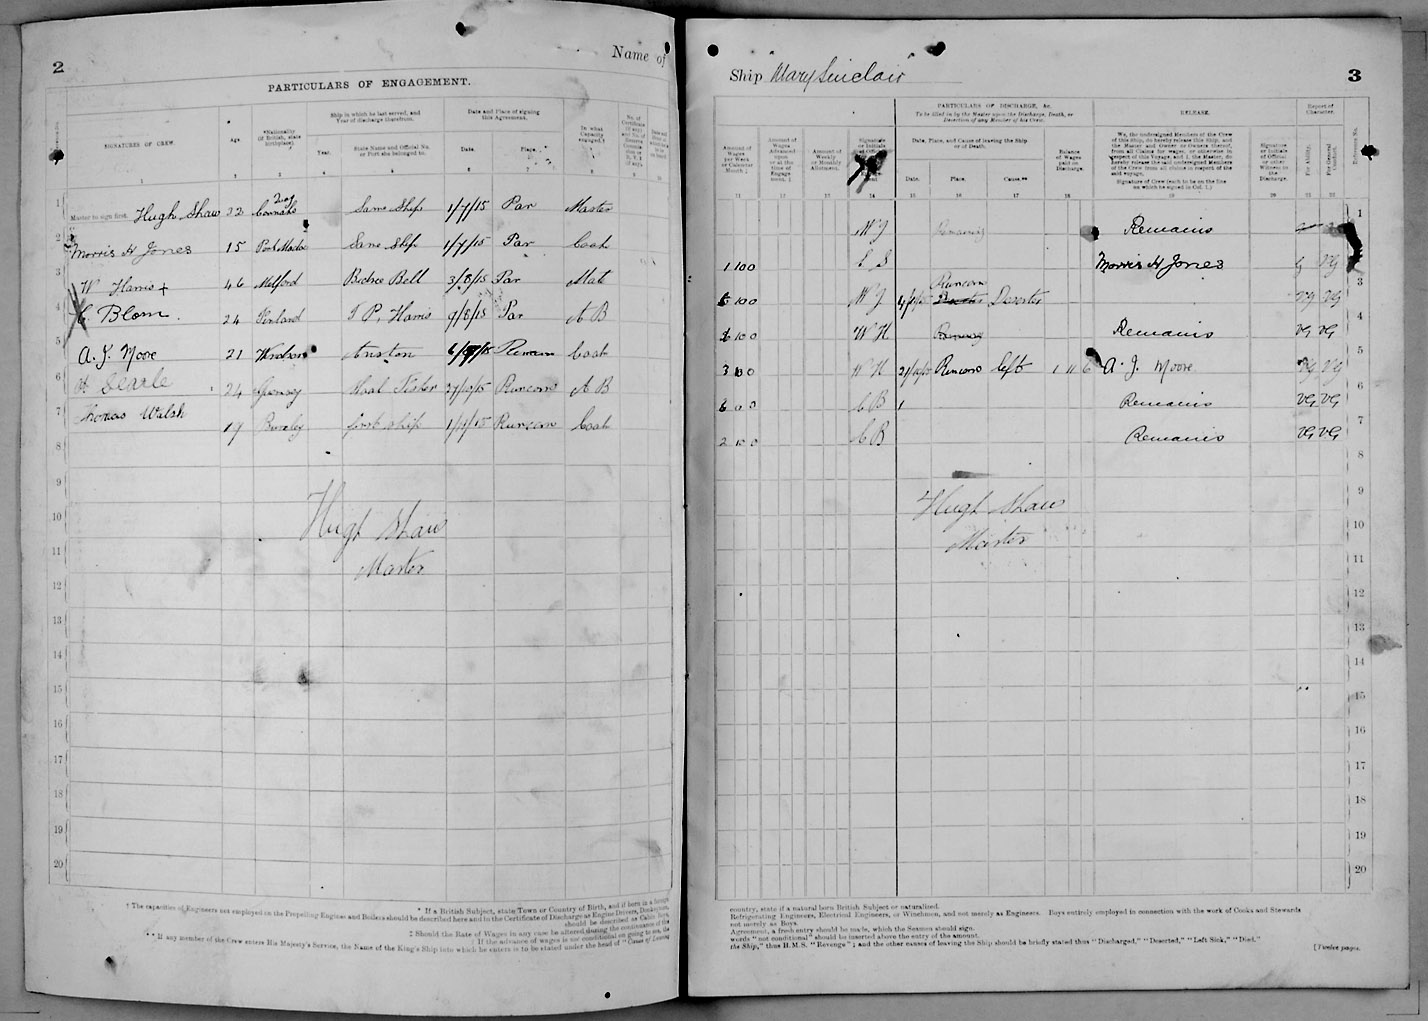 2
Name of
PARTICULARS OF ENGAGEMENT.
SIGNATURES OF CREW.
Age.
*Nationality
(If British, state
birthplace).
Ship in which he last served, and
Year of discharge therefrom.
Year.
State Name and Official No.
or Port she belonged to.
Date and Place of signing
this Agreement.
Date.
Place.
In what
Capacity
engaged.†
1 2 3 4 5 6 7 8 9 10
1 Master to sign first. Hugh Shaw 32 Connahs Quay Same Ship 1/7/15 Par Master
2 Morris H Jones 15 Port Madoc Same Ship 1/7/15 Par Cook
3 W Harris + 46 Milford Bedree Bell 3/8/15 Par Mate
4 C. Blom. 24 Finland T P. Harris 9/8/15 Par A B
5 A. J. Moore 21 Windsor Aniston Runcorn Cook
6 H. Searle 24 Guernsey 27/10/15 Runcorn A B
7 Thomas Walsh 17 first ship Runcorn Cook
8
9
10 Hugh Shaw
11 Master
12
13
14
15
16
17
18
19
20
† The capacities of Engineers not employed on the Propelling Engines and Boilers should be described here and in the Certificate of Discharge as Engine Drivers, Donkeymen,
* If a British Subject, state Town or County of Birth, and if born in a foreign
should be described as Cabin Boys,
‡ Should the Rate of Wages in any case be altered during the continuance of this
‡ If the advance of wages is not conditional on going to sea, the
** If any member of the Crew enters His Majesty's Service, the Name of the King's Ship into which he enters is to be stated under the head of "Cause of Leaving
Ship "Mary Sinclair"
3
PARTICULARS OF DISCHARGE, &c.
To be filled in by the Master upon the Discharge, Death, or
Desertion of any Member of his Crew.
RELEASE.
Report of
Character.
Amount of
Wages
per Week
or Calendar
Month.‡
Amount of
Wages
Advanced
upon
or at the
time of
Engage-
ment. ‡
Amount of
Weekly
or Monthly
Allotment.
Signature
or Initials
Date, Place, and Cause of leaving the Ship
or of Death.
Date.
Place.
Cause.**
Balance
of Wages
paid on
Discharge.
We, the undersigned Members of the Crew
of this ship, do hereby release this ship, and
the Master and Owner or Owners thereof,
from all Claims for wages, or otherwise in
respect of this Voyage, and I, the Master, do
hereby release the said undersigned Members
of the Crew from all claims in respect of the
said voyage.
Signature of Crew (each to be on the line
on which he signed in Col. 1.)
Signature
or Initials
of Official
or other
Witness to
the
Discharge.
For Ability.
For General
Conduct.
Reference No.
11 12 13 14 15 16 17 18 19 20 21 22
W J Remaining Remains 1
1 10 0 C S Morris H Jones G VG
W J Runcorn Deserter VG VG 3
W H Remains VG VG 4
3 W H Runcorn left 1 11 6 A. J. Moore VG VG 5
C B Remains VG VG
2 10 0 C B Remains VG VG 7
8
Hugh Shaw 9
Master 10
11
12
13
14
15
16
17
18
19
20
country, state if a natural born British Subject or naturalized.
Refrigerating Engineers, Electrical Engineers, or Winchmen, and not merely as Engineers. Boys entirely employed in connection with the work of Cooks and Stewards
not merely as Boys.
Agreement, a fresh entry should be made, which the Seaman should sign.
words "not conditional" should be inserted above the entry of the amount.
the Ship," thus H.M.S. "Revenge"; and the other causes of leaving the Ship should be briefly stated thus "Discharged," "Deserted," "Left Sick," "Died."
[Twelve pages.